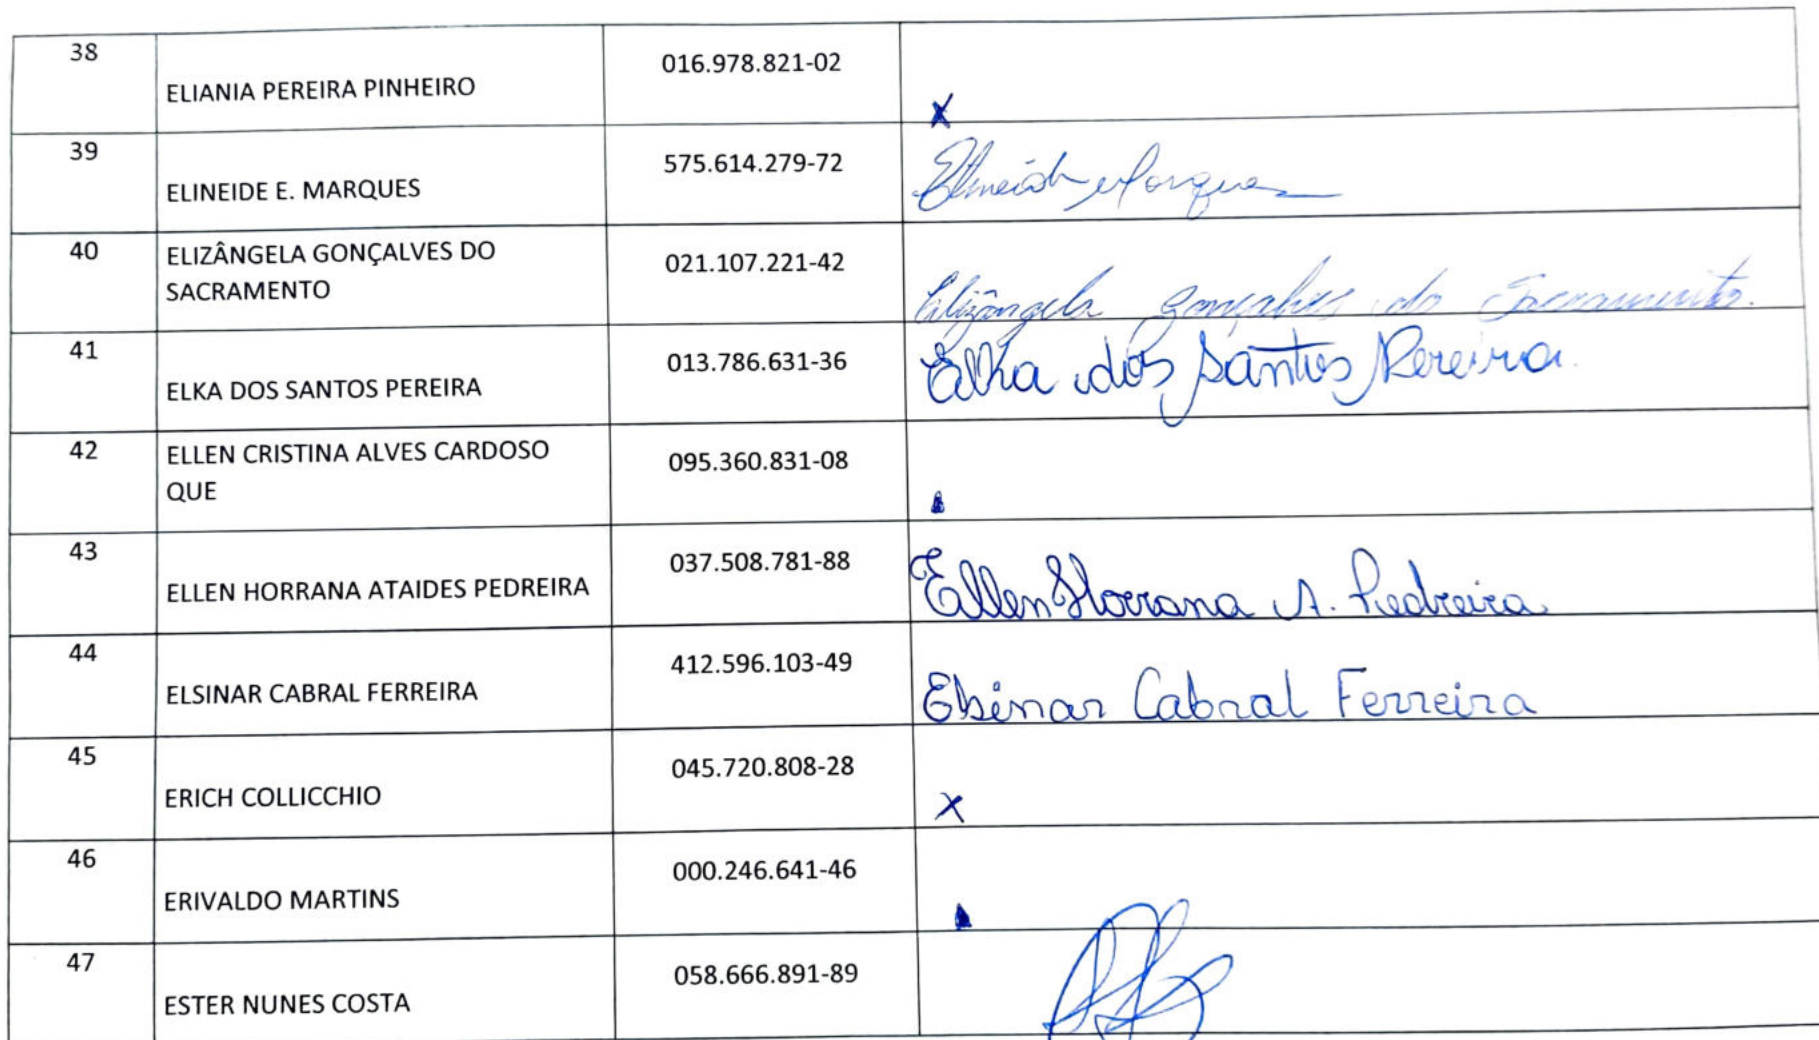 38 ELIANIA PEREIRA PINHEIRO 016.978.821-02 X
39 ELINEIDE E. MARQUES 575.614.279-72 Elineide Marques
40 ELIZÂNGELA GONÇALVES DO
SACRAMENTO 021.107.221-42 Elizângela Gonçalves do Sacramento.
41 ELKA DOS SANTOS PEREIRA 013.786.631-36 Elka dos Santos Pereira.
42 ELLEN CRISTINA ALVES CARDOSO
QUE 095.360.831-08
43 ELLEN HORRANA ATAIDES PEDREIRA 037.508.781-88 Ellen Horrana A. Pedreira
44 ELSINAR CABRAL FERREIRA 412.596.103-49 Elsinar Cabral Ferreira
45 ERICH COLLICCHIO 045.720.808-28 X
46 ERIVALDO MARTINS 000.246.641-46
47 ESTER NUNES COSTA 058.666.891-89